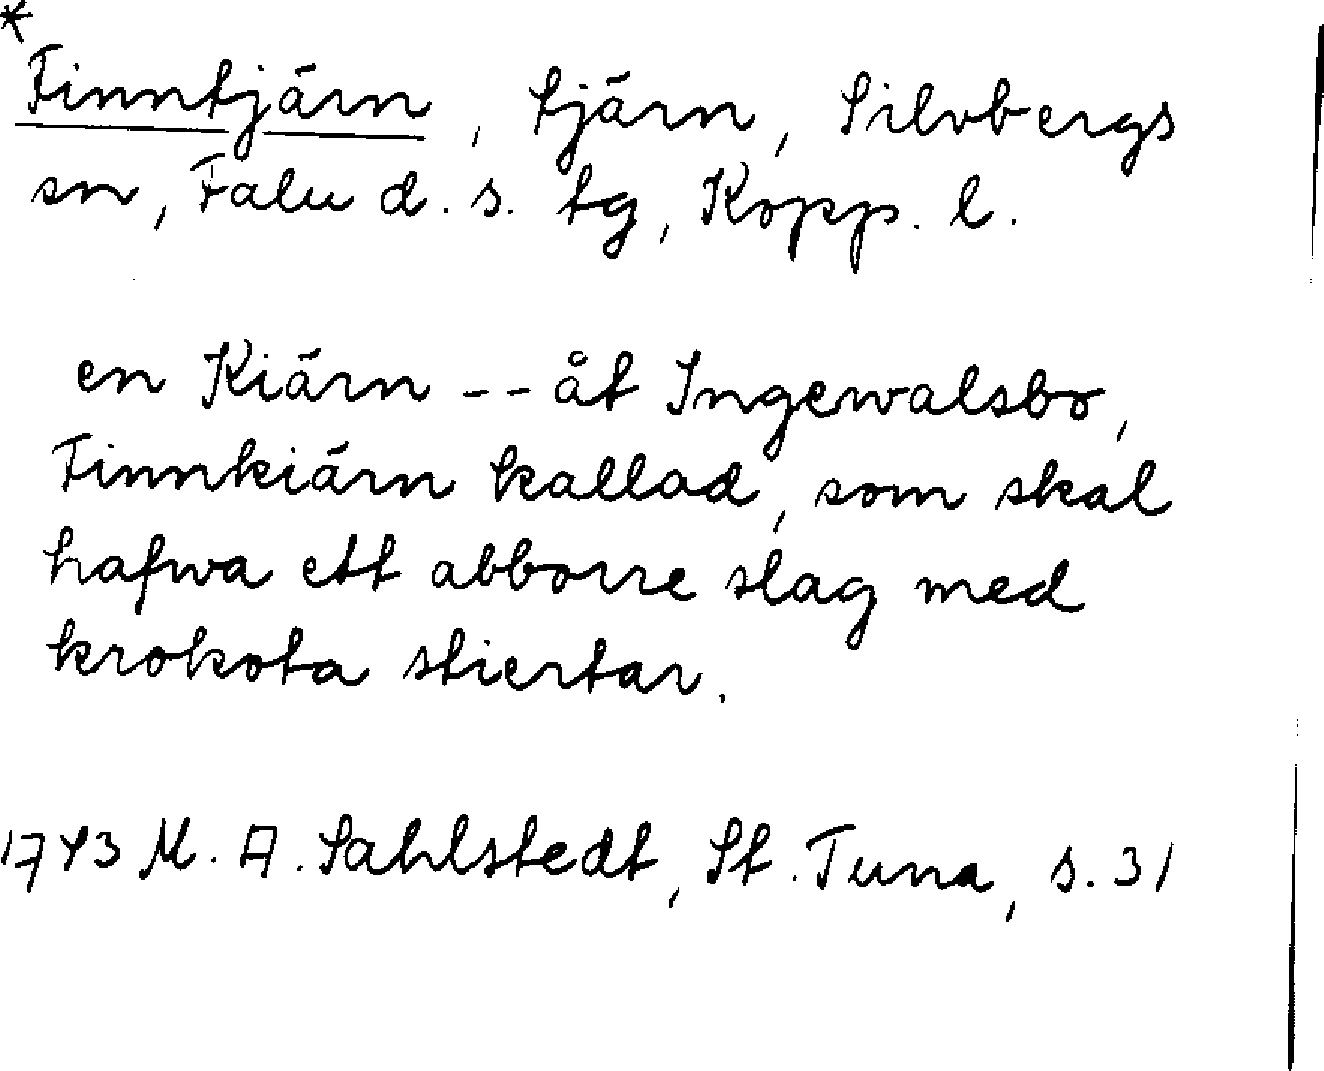 *
Finntjärn, tjärn, Silvbergs
sn, Falu d. s. tg, Kopp. l.
en Kiärn -- åt Ingewalsbo,
Finnkiärn kallad, som skal
hafwa ett abborre slag med
krokota stiertar.
1743 M. A. Sahlstedt, St. Tuna, s. 31